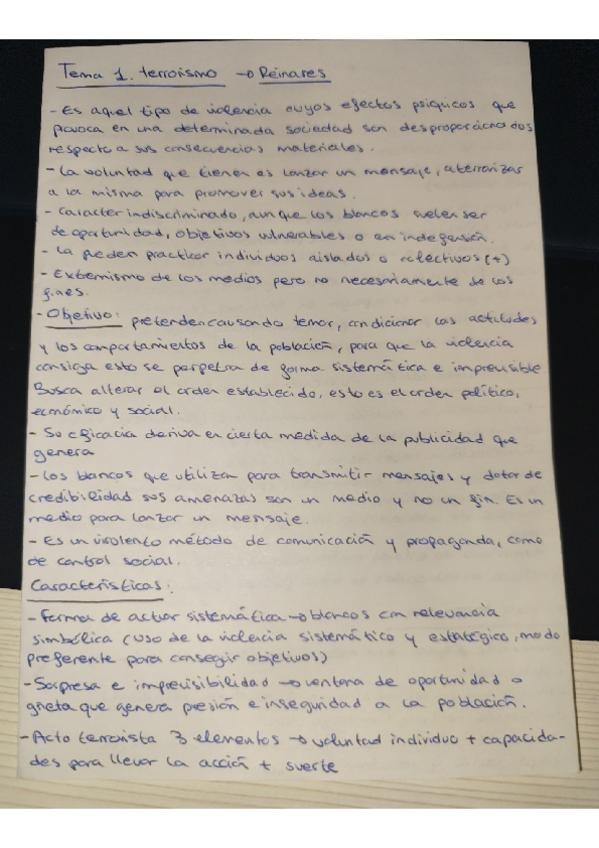 Tema 1. terrorismo → Reinares
- Es aquel tipo de violencia cuyos efectos psiquicos que
provoca en una determinada sociedad son desproporcionados
respecto a sus consecuencias materiales.
- La voluntad que tienen es lanzar un mensaje, aterrorizar
a la misma para promover sus ideas.
- Caracter indiscriminado, aunque los blancos suelen ser
de oportunidad, objetivos vulnerables o en indefensión.
- La pueden practicar individuos aislados o colectivos (+)
- Extremismo de los medios pero no necesariamente de los
fines.
- Objetivo: pretenden causando temor, condicionar las actitudes
y los comportamientos de la población, para que la violencia
consiga esto se perpetra de forma sistemática e imprevisible
Busca alterar el orden establecido, esto es el orden político,
económico y social.
- Su eficacia deriva en cierta medida de la publicidad que
genera
- Los blancos que utilizan para transmitir mensajes y dotar de
credibilidad sus amenazas son un medio y no un fin. Es un
medio para lanzar un mensaje.
- Es un violento método de comunicación y propaganda, como
de control social.
Características:
- Forma de actuar sistemática → blancos con relevancia
simbólica (uso de la violencia sistemático y estratégico, modo
preferente para conseguir objetivos)
- Sorpresa e imprevisibilidad → ventana de oportunidad o
grieta que genera presión e inseguridad a la población.
- Acto terrorista 3 elementos → voluntad individuo + capacida-
des para llevar la acción + suerte